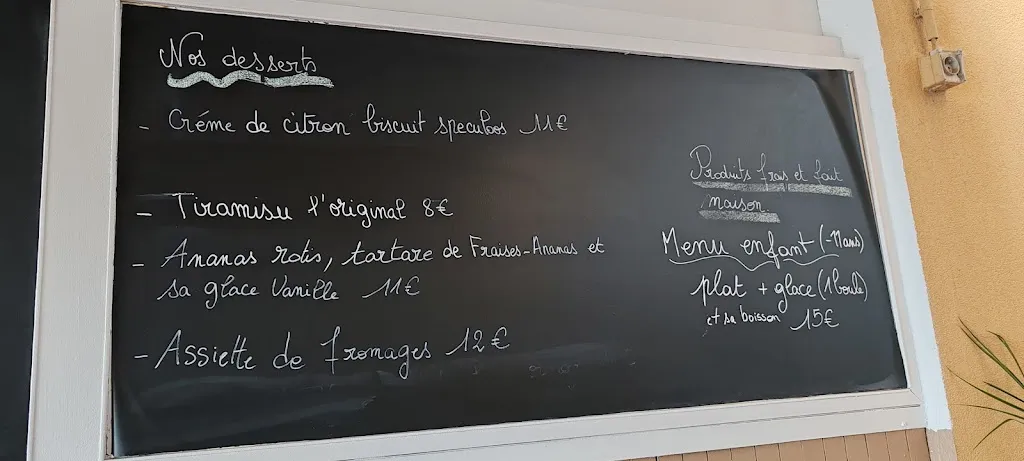 Nos desserts
- Créme de citron biscuit speculoos 11€
- Tiramisu l'original 8€
- Ananas rotis, tartare de Fraises-Ananas et
sa glace Vanille 11€
- Assiette de fromages 12€
Produits frais et fait
maison
Menu enfant (-11ans)
plat + glace (1 boule)
et sa boisson 15€